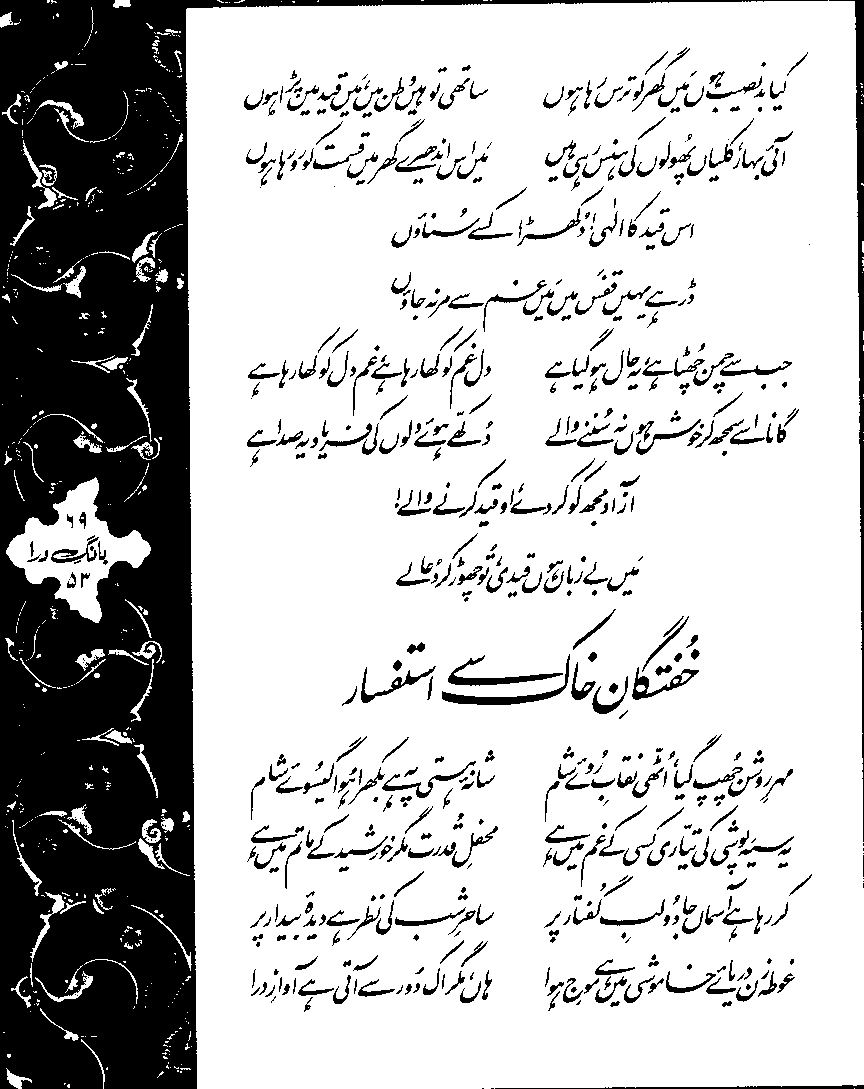 کیا بد نصیب ہوں مَیں گھر کو ترس رہا ہوں ساتھی تو ہیں وطن میں، مَیں قید میں پڑا ہوں
آئی بہار، کلیاں پھُولوں کی ہنس رہی ہیں مَیں اس اندھیرے گھر میں قسمت کو رو رہا ہوں
اس قید کا الٰہی! دُکھڑا کسے سُناؤں
ڈر ہے یہیں قفَس میں مَیں غم سے مر نہ جاؤں
جب سے چمن چھُٹا ہے، یہ حال ہو گیا ہے دل غم کو کھا رہا ہے، غم دل کو کھا رہا ہے
گانا اسے سمجھ کر خوش ہوں نہ سُننے والے دُکھے ہوئے دلوں کی فریاد یہ صدا ہے
آزاد مجھ کو کر دے، او قید کرنے والے!
مَیں بے زباں ہوں قیدی، تُو چھوڑ کر دُعا لے
خُفتگانِ خاک سے استفسار
مہرِ روشن چھُپ گیا، اُٹھی نقابِ رُوئے شام شانۂ ہستی پہ ہے بکھرا ہُوا گیسُوئے شام
یہ سیہ پوشی کی تیّاری کسی کے غم میں ہے محفلِ قُدرت مگر خورشید کے ماتم میں ہے
کر رہا ہے آسماں جادُو لبِ گُفتار پر ساحرِ شب کی نظر ہے دیدۂ بیدار پر
غوطہ زن دریائے خاموشی میں ہے موجِ ہوا ہاں، مگر اک دُور سے آتی ہے آوازِ درا
۶۹
بانگِ درا
۵۳